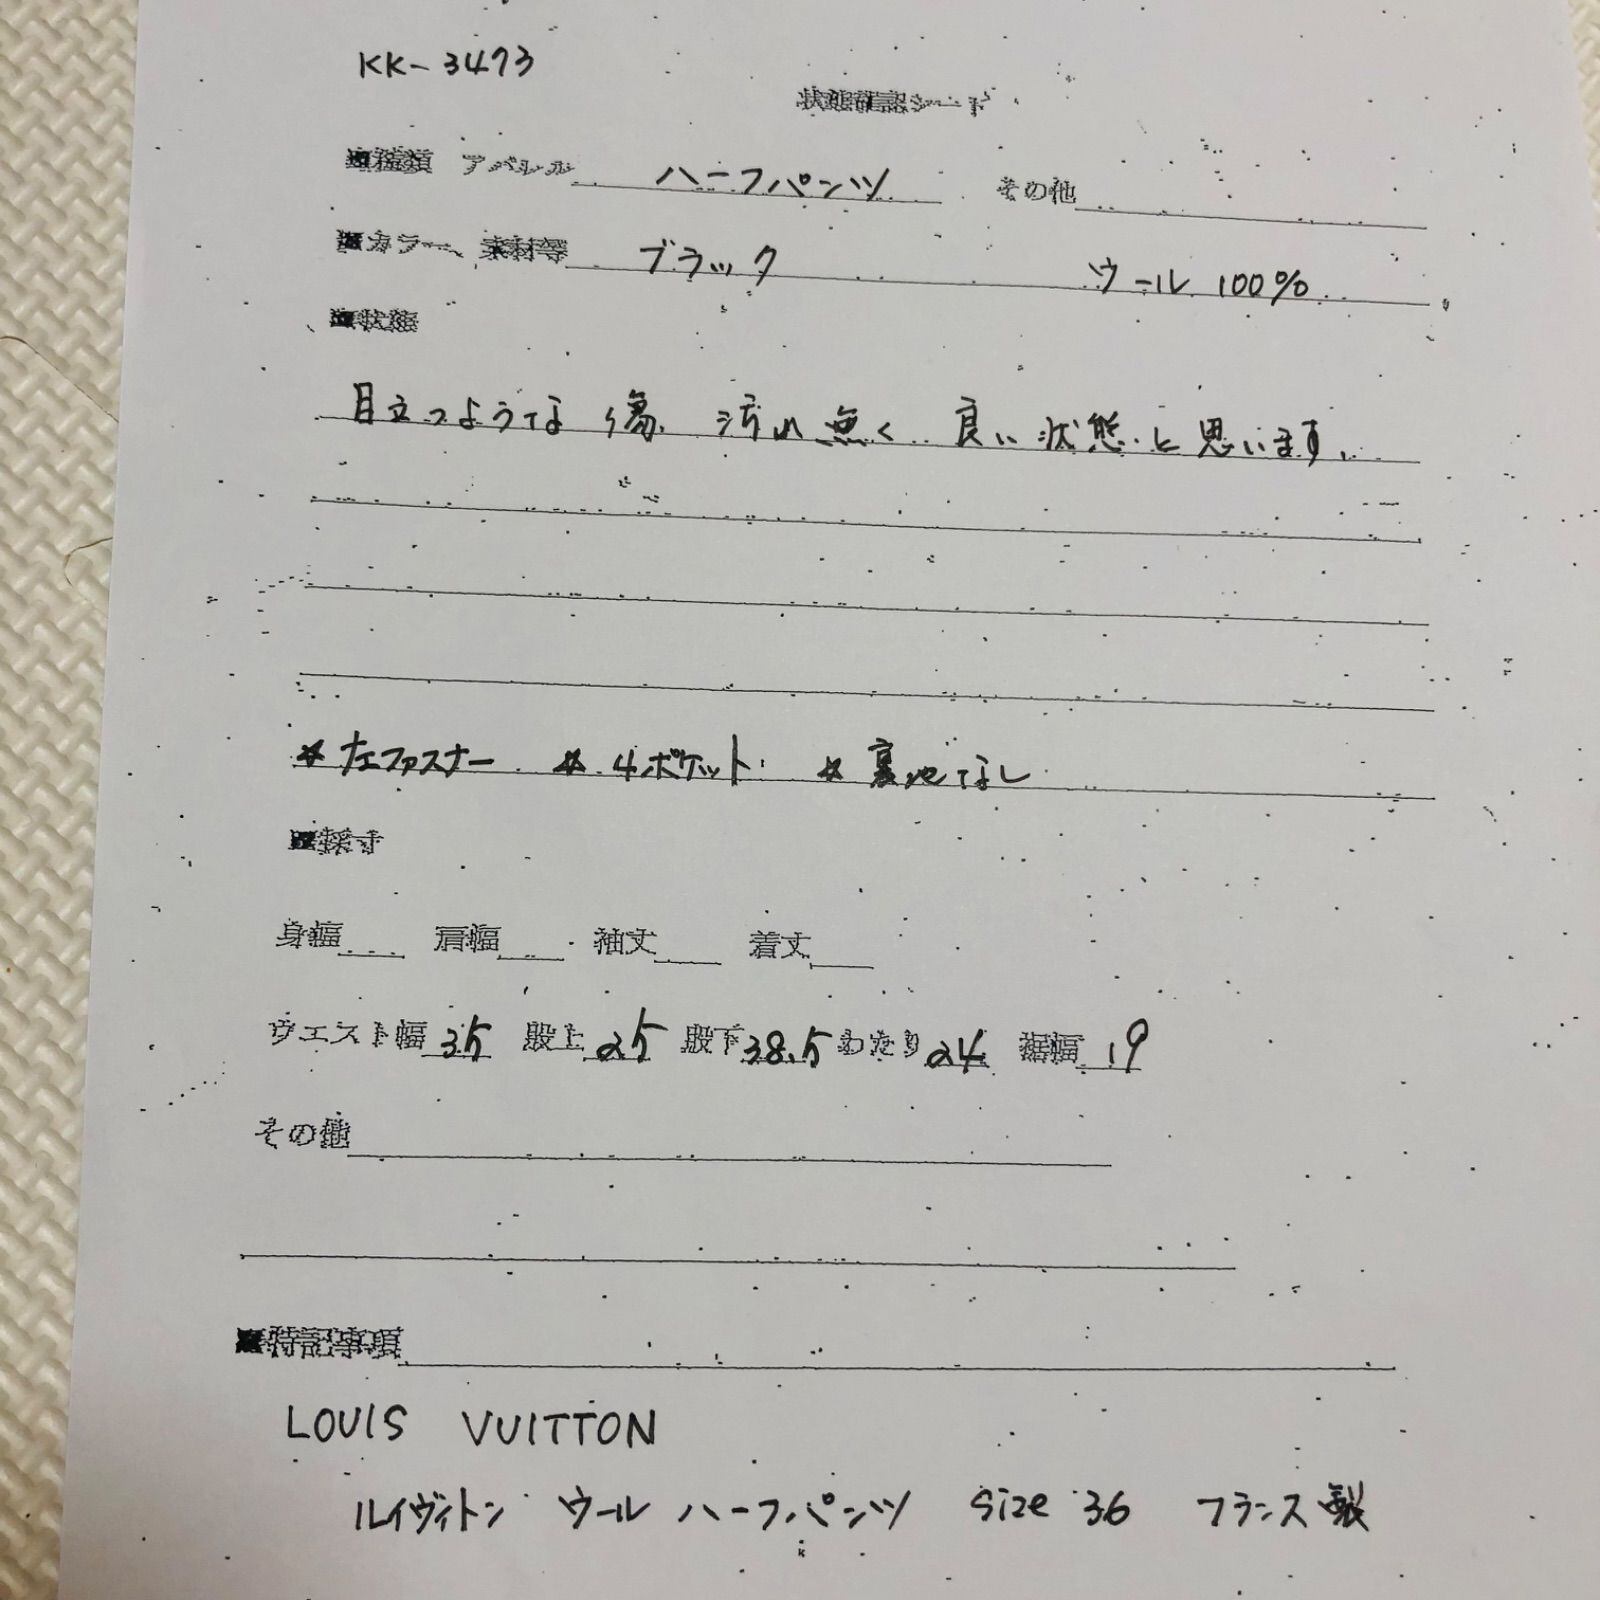 KK-3473
状態確認シート
■種類 アパレル ハーフパンツ その他
■カラー、素材等 ブラック ウール 100%
■状態
目立つような傷、汚れ無く 良い状態と思います。
*左ファスナー *4ポケット *裏地なし
■採寸
身幅 肩幅 袖丈 着丈
ウエスト幅 35 股上 25 股下 38.5 わたり 24 裾幅 19
その他
■特記事項
LOUIS VUITTON
ルイヴィトン ウール ハーフパンツ size 36 フランス製